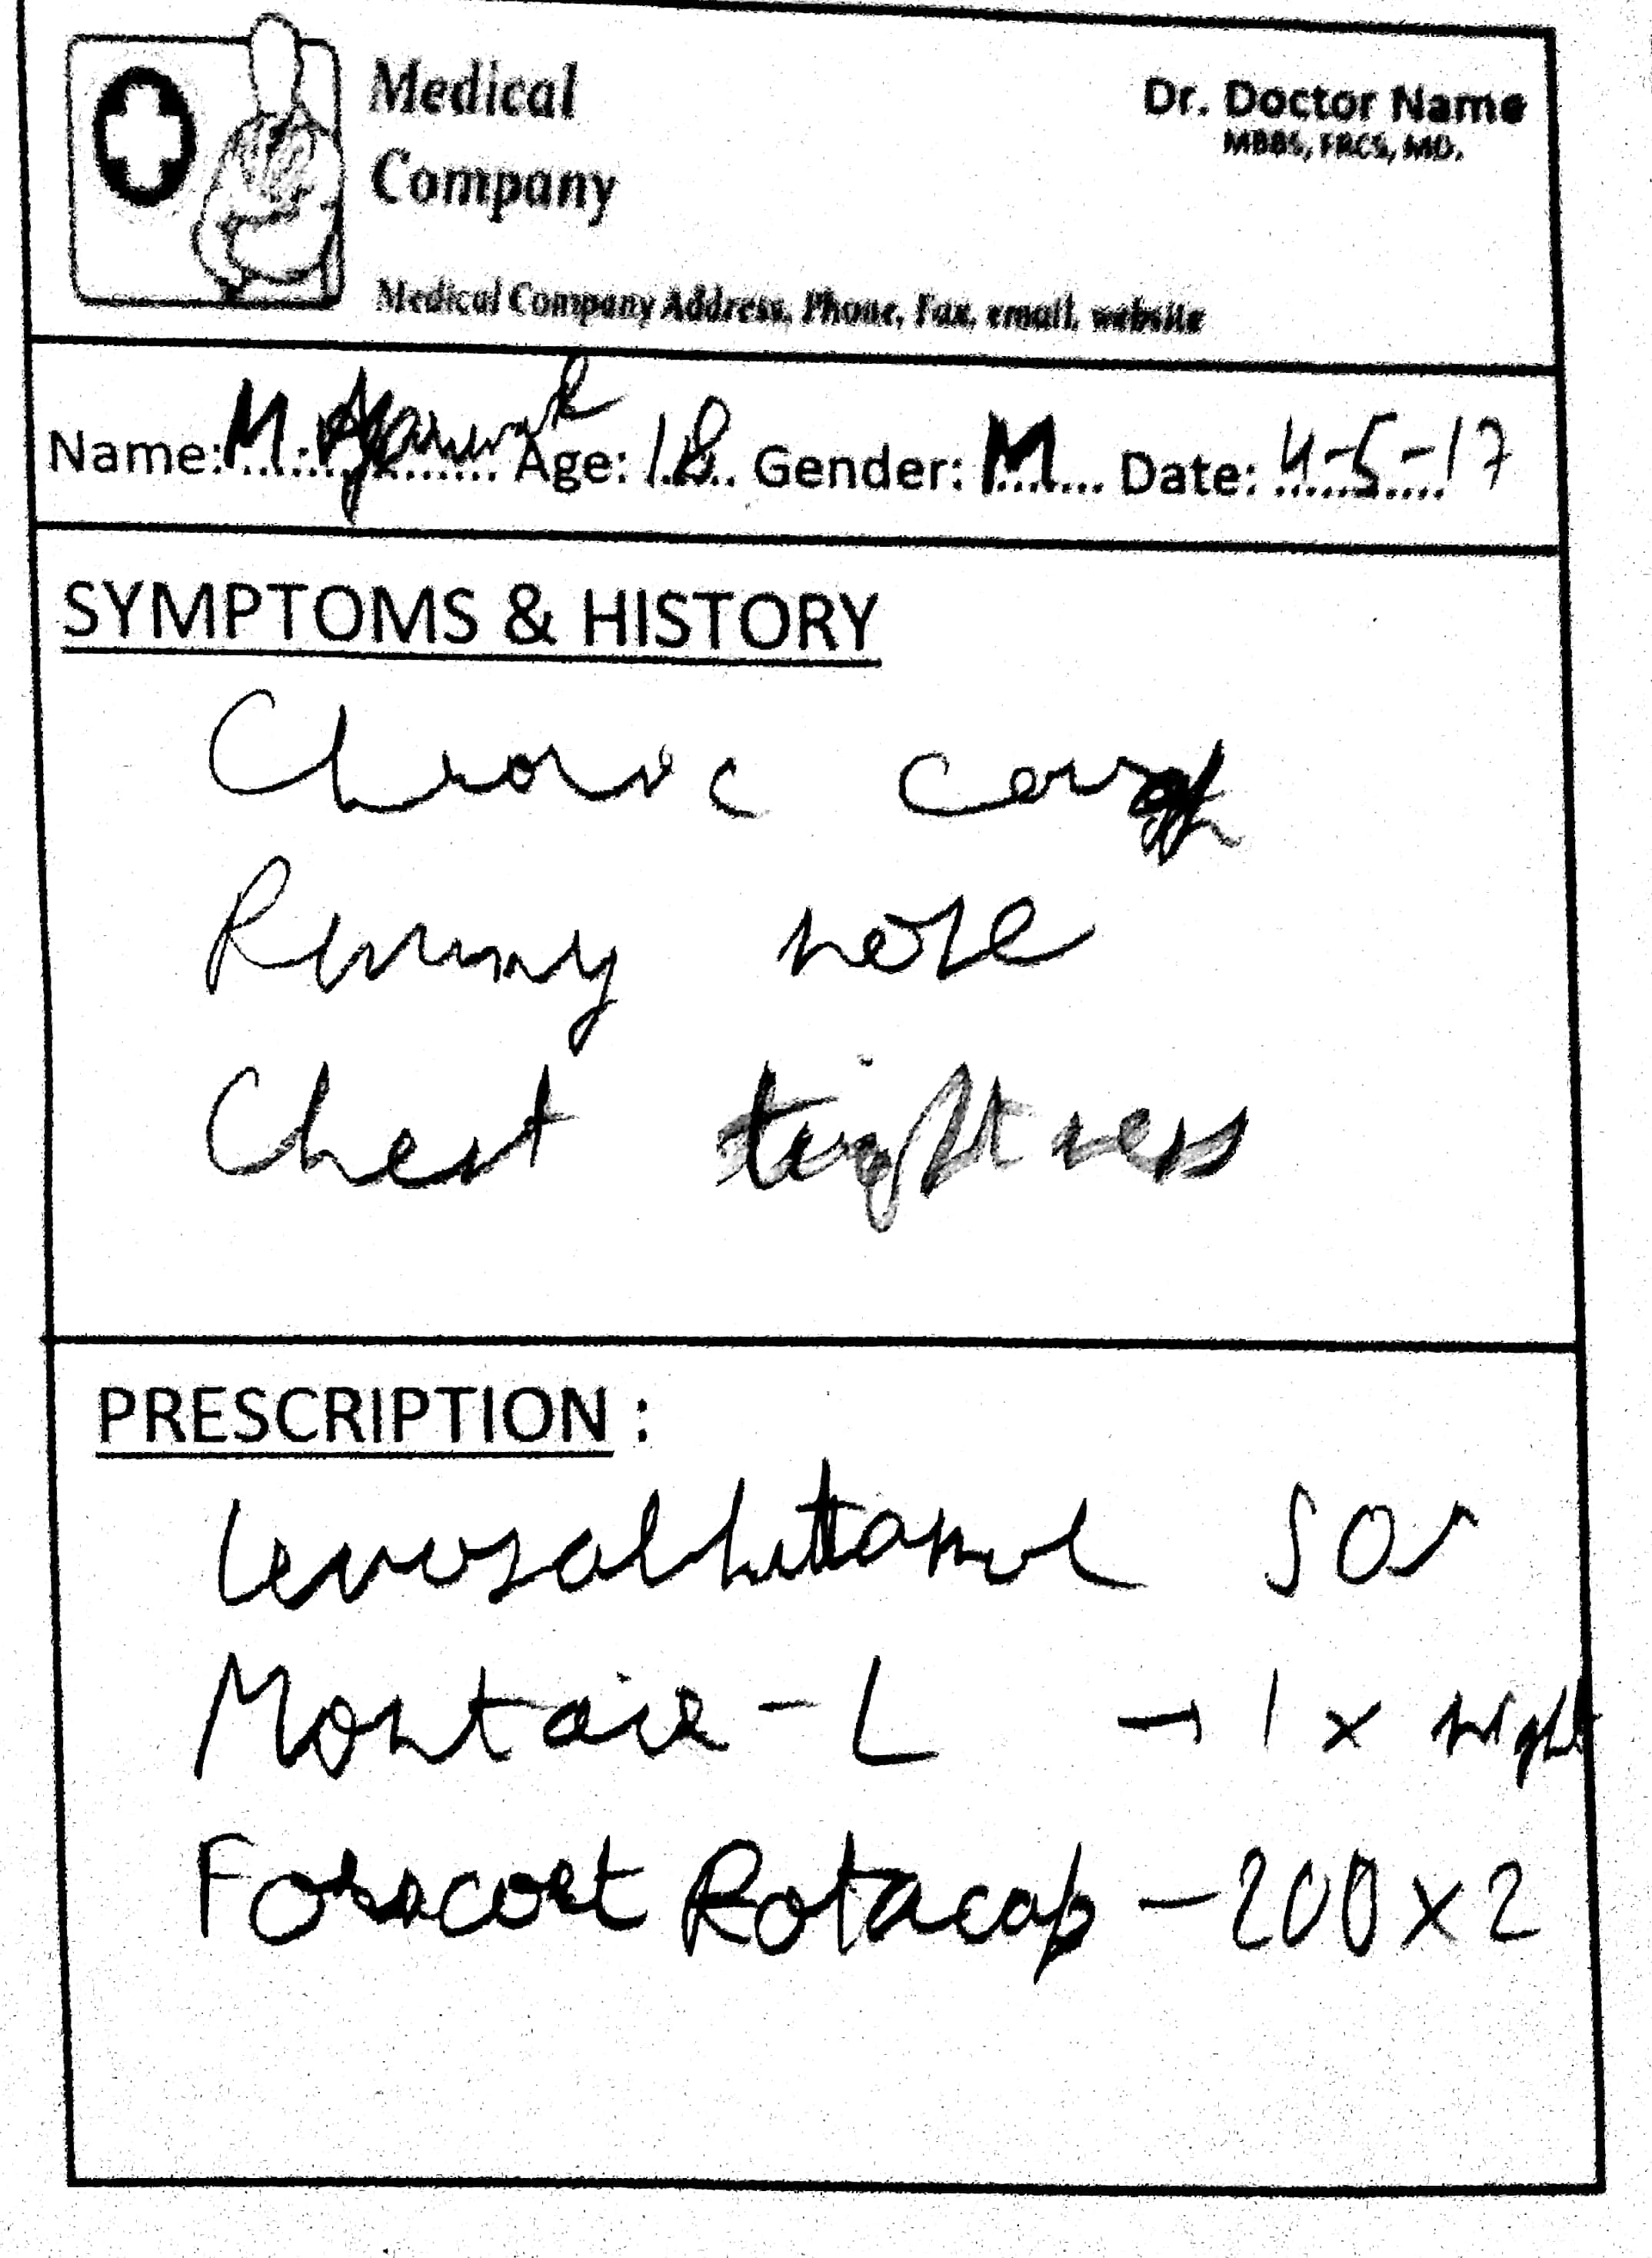 Medical
Company
Dr. Doctor Name
MBBS, FRCS, MD.
Medical Company Address, Phone, Fax, email, website
Name: M. Age: 18 Gender: M Date: 4-5-17
SYMPTOMS & HISTORY
Chronic cough
Runny nose
Chest tightness
PRESCRIPTION :
Levosalbutamol SOS
Montair-L → 1 x night
Foracort Rotacap - 200 x 2